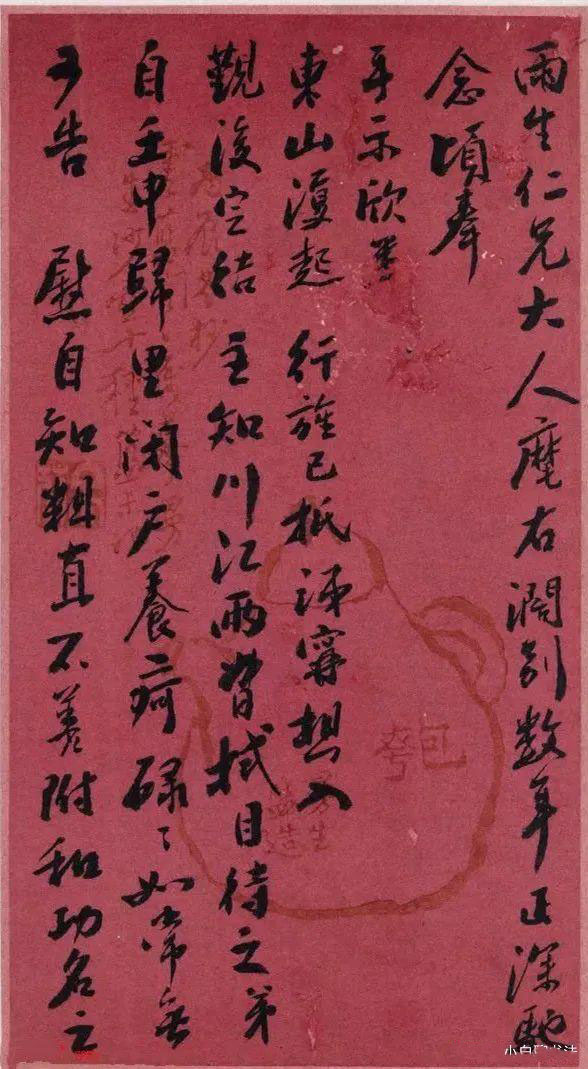 雨生仁兄大人麾右濶别数年正深馳
念頃奉
手示欣悉
東山復起 行旌已抵津窜想入
觀後定结 主知川江兩督拭目待之弟
自壬申歸里閉户養疴碌〻如常無
可告 慰自知粗直不善附和功名之
包壺